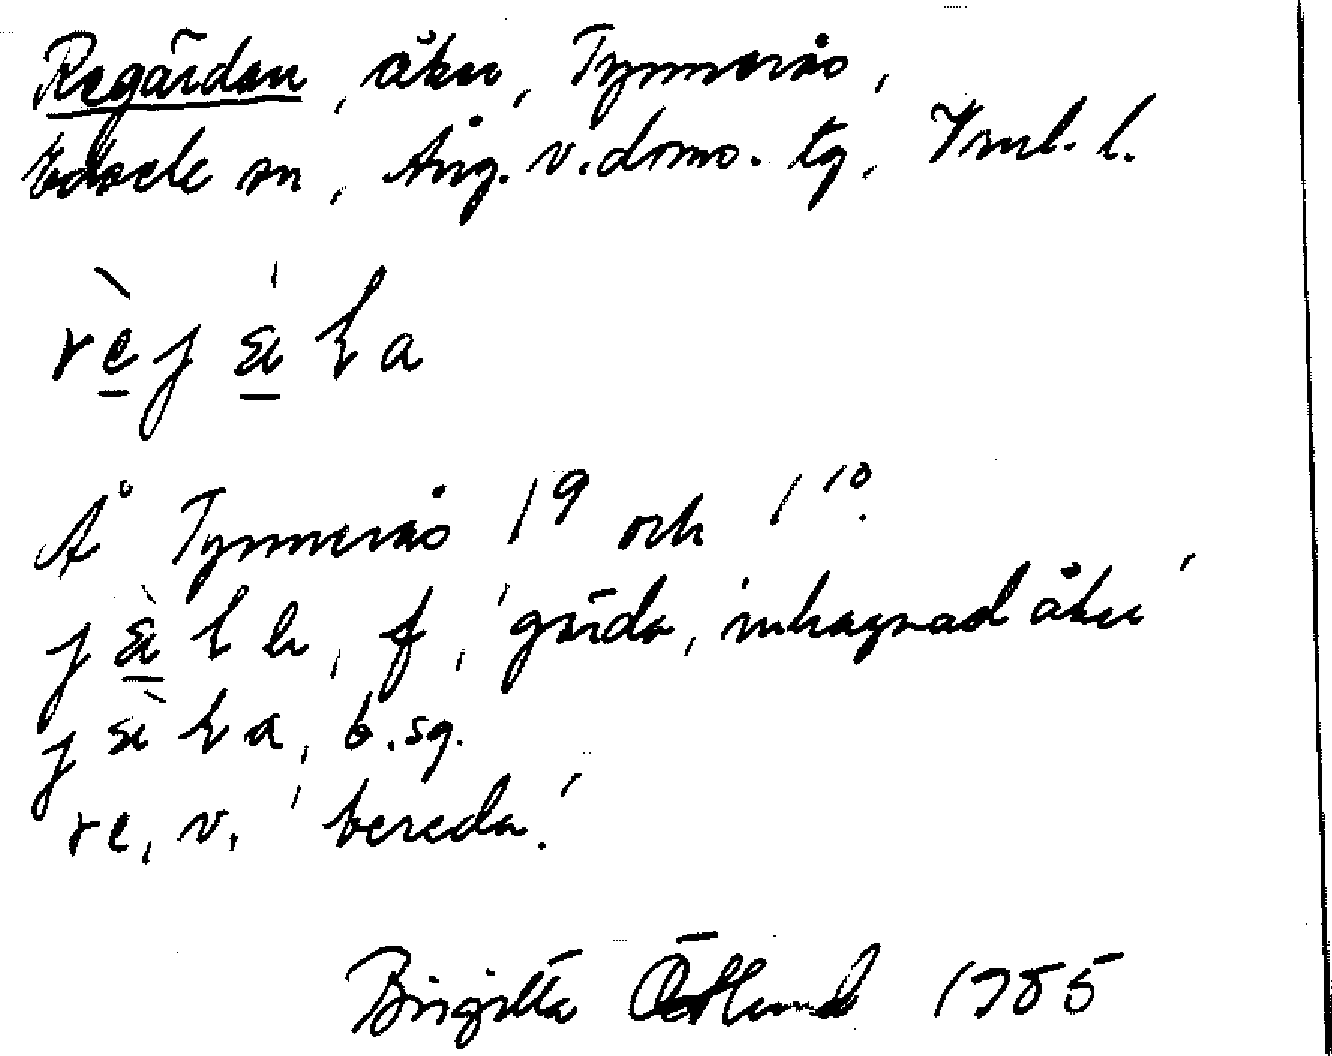 Regärdan, åker, Tymmerås,
Edsele sn, Ång. v. doms. tg, Vnl. l.
rè̱jǽ̱ɽa
Å Tymmerås 1⁹ och 1¹⁰.
jæ̱̀ɽe, f, 'gärda, inhägnad åker'
jæ̀ɽa, b.sg.
re, v. 'bereda.'
Birgitta Östlund 1985